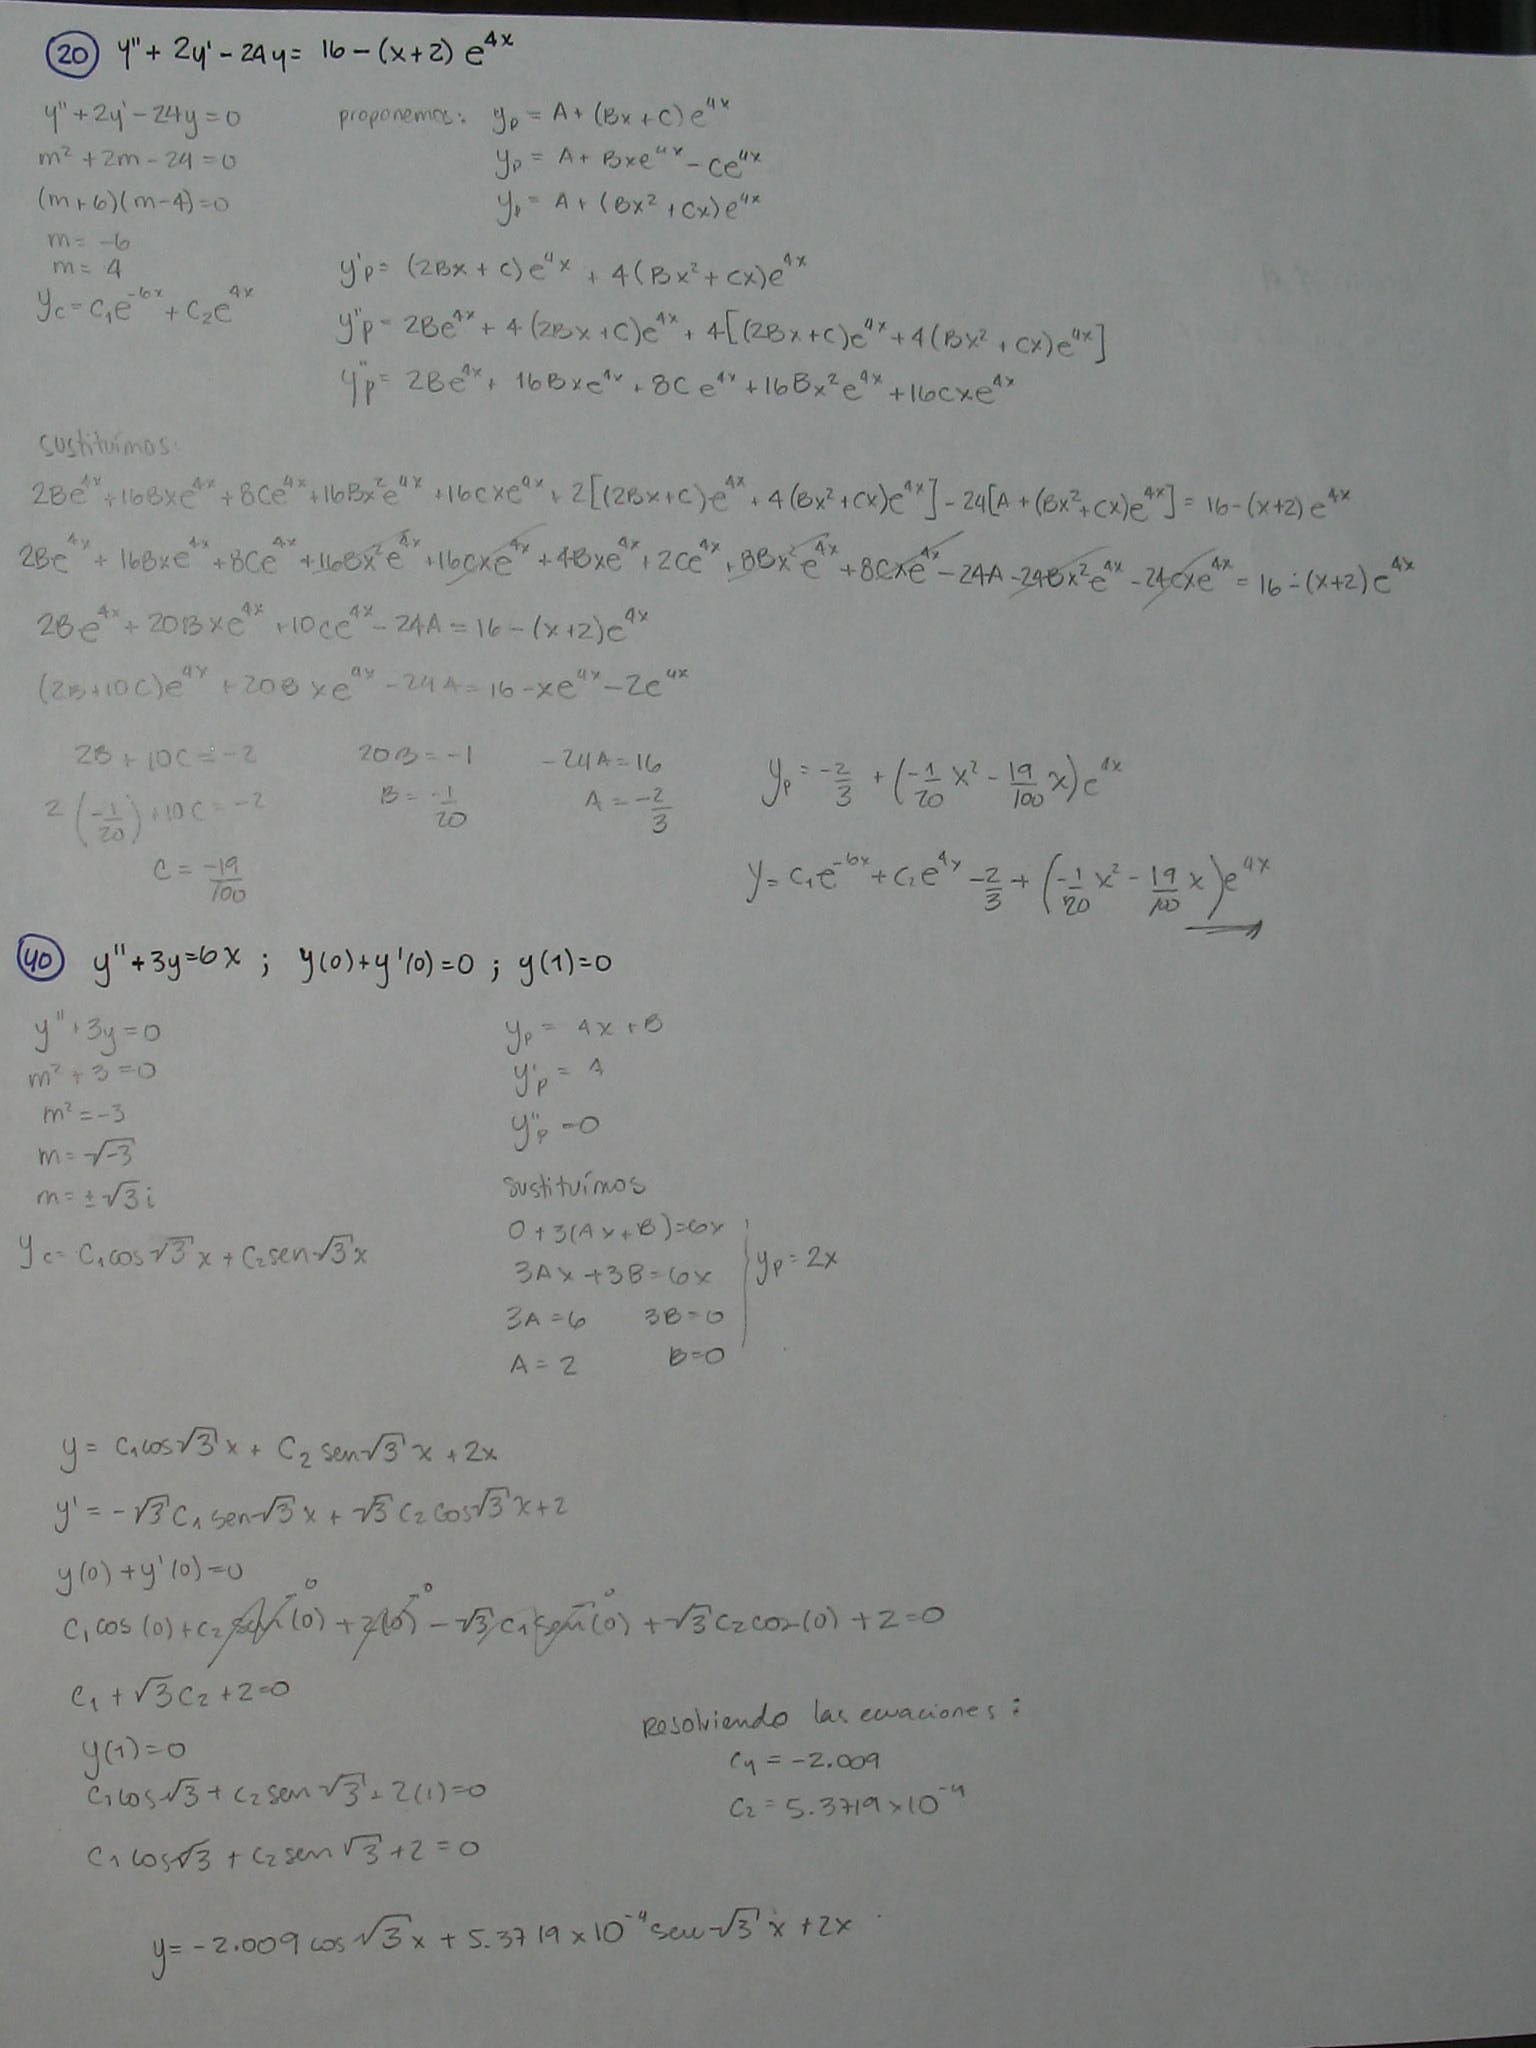 20 y'' + 2y' - 24y = 16 - (x+2) e^{4x}
y'' + 2y' - 24y = 0
m² + 2m - 24 = 0
(m+6)(m-4)=0
m = -6
m = 4
yc = c₁e^{-6x} + c₂e^{4x}
proponemos: yp = A + (Bx + C) e^{4x}
yp = A + Bxe^{4x} - Ce^{4x}
yp = A + (Bx² + Cx) e^{4x}
y'p = (2Bx + C) e^{4x} + 4(Bx² + Cx)e^{4x}
y''p = 2Be^{4x} + 4(2Bx + C)e^{4x} + 4[(2Bx+C)e^{4x} + 4(Bx² + Cx)e^{4x}]
y''p = 2Be^{4x} + 16Bxe^{4x} + 8Ce^{4x} + 16Bx²e^{4x} + 16Cxe^{4x}
sustituímos:
2Be^{4x} + 16Bxe^{4x} + 8Ce^{4x} + 16Bx²e^{4x} + 16Cxe^{4x} + 2[(2Bx+C)e^{4x} + 4(Bx²+Cx)e^{4x}] - 24[A + (Bx²+Cx)e^{4x}] = 16 - (x+2) e^{4x}
2Be^{4x} + 16Bxe^{4x} + 8Ce^{4x} + 16Bx²e^{4x} + 16Cxe^{4x} + 4Bxe^{4x} + 2Ce^{4x} + 8Bx²e^{4x} + 8Cxe^{4x} - 24A - 24Bx²e^{4x} - 24Cxe^{4x} = 16 - (x+2) e^{4x}
2Be^{4x} + 20Bxe^{4x} + 10Ce^{4x} - 24A = 16 - (x+2)e^{4x}
(2B+10C)e^{4x} + 20Bxe^{4x} - 24A = 16 - xe^{4x} - 2e^{4x}
2B + 10C = -2
2(-1/20) + 10C = -2
C = -19/100
20B = -1
B = -1/20
-24A = 16
A = -2/3
yp = -2/3 + (-1/20 x² - 19/100 x) e^{4x}
y = c₁e^{-6x} + c₂e^{4x} - 2/3 + (-1/20 x² - 19/100 x) e^{4x}
40 y'' + 3y = 6x ; y(0) + y'(0) = 0 ; y(1) = 0
y'' + 3y = 0
m² + 3 = 0
m² = -3
m = √-3
m = ±√3 i
yc = C₁cos√3 x + C₂sen√3 x
yp = Ax + B
y'p = A
y''p = 0
sustituímos
0 + 3(Ax + B) = 6x
3Ax + 3B = 6x
3A = 6 3B = 0
A = 2 B = 0
yp = 2x
y = C₁cos√3 x + C₂ sen√3 x + 2x
y' = -√3 C₁ sen√3 x + √3 C₂ cos√3 x + 2
y(0) + y'(0) = 0
C₁cos(0) + C₂ sen(0) 0 + 2(0) 0 - √3 C₁ sen(0) 0 + √3 C₂ cos(0) + 2 = 0
C₁ + √3 C₂ + 2 = 0
y(1) = 0
C₁cos√3 + C₂ sen√3 + 2(1) = 0
C₁ cos√3 + C₂ sen√3 + 2 = 0
Resolviendo las ecuaciones:
C₁ = -2.009
C₂ = 5.3719 x 10^{-4}
y = -2.009 cos√3 x + 5.3719 x 10^{-4} sen√3 x + 2x